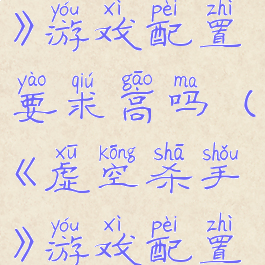 yóu xì pèi zhì
》游戏配置
yào qiú gāo ma
要求高吗（
xū kōng shā shǒu
《虚空杀手
yóu xì pèi zhì
》游戏配置